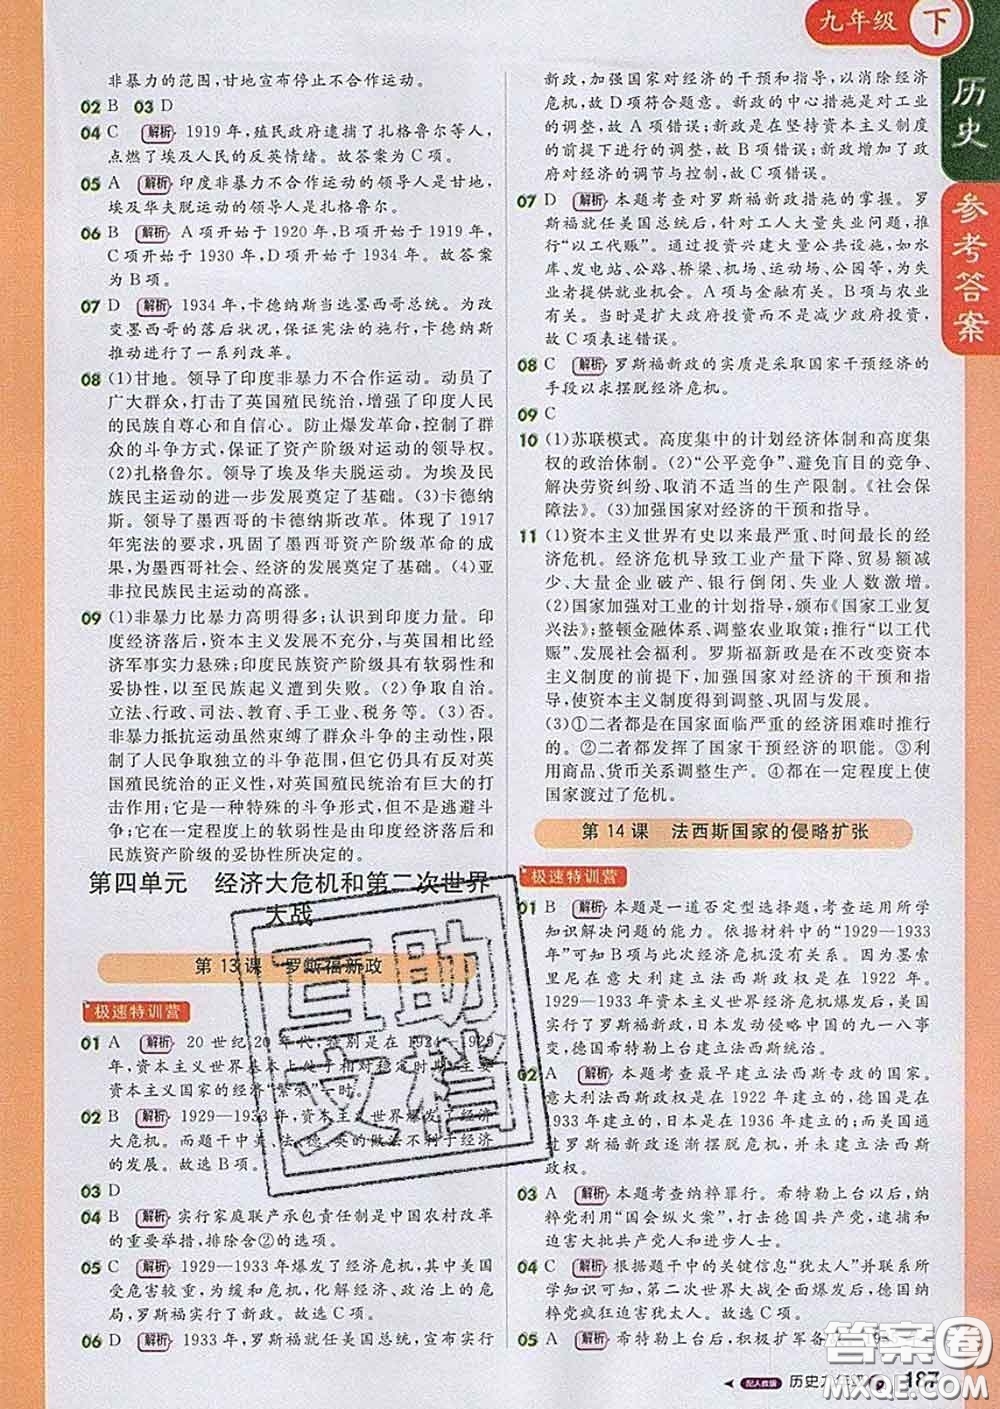 九年级 下
历史
参考答案
非暴力的范围,甘地宣布停止不合作运动。
02 B 03 D
04 C 解析 1919年,殖民政府逮捕了扎格鲁尔等人,
点燃了埃及人民的反英情绪。故答案为C项。
05 A 解析 印度非暴力不合作运动的领导人是甘地,
埃及华夫脱运动的领导人是扎格鲁尔。
06 B 解析 A项开始于1920年,B项开始于1919年,
C项开始于1930年,D项开始于1934年。故答案
为B项。
07 D 解析 1934年,卡德纳斯当选墨西哥总统。为改
变墨西哥的落后状况,保证宪法的施行,卡德纳斯
推动进行了一系列改革。
08 (1)甘地。领导了印度非暴力不合作运动。动员了
广大群众,打击了英国殖民统治,增强了印度人民
的民族自尊心和自信心。防止爆发革命,控制了群
众的斗争方式,保证了资产阶级对运动的领导。
(2)扎格鲁尔。领导了埃及华夫脱运动。为埃及民
族民主运动的进一步发展奠定了基础。(3)卡德纳
斯。领导了墨西哥的卡德纳斯改革。体现了1917
年宪法的要求,巩固了墨西哥资产阶级革命的成
果,为墨西哥社会、经济的发展奠定了基础。(4)亚
非拉民族民主运动的高涨。
09 (1)非暴力比暴力高明得多;认识到印度力量。印
度经济落后,资本主义发展不充分,与英国相比经
济军事实力悬殊;印度民族资产阶级具有软弱性和
妥协性,以至民族起义遭到失败。(2)争取自治。
立法、行政、司法、教育、手工业、税务等。(3)否。
非暴力抵抗运动虽然束缚了群众斗争的主动性,限
制了人民争取独立的斗争范围,但它仍具有反对英
国殖民统治的正义性,对英国殖民统治有巨大的打
击作用;它是一种特殊的斗争形式,但不是逃避斗
争;它一定程度上的软弱性是由印度经济落后和
民族资产阶级的妥协性所决定的。
第四单元 经济大危机和第二次世界
大战
第13课 罗斯福新政
极速特训营
01 A 解析 20世纪20年代,特别是在1924—1929
年,资本主义世界基本上处于相对稳定时期,主要
资本主义国家的经济“繁荣”一时。
02 B 解析 1929—1933年,资本主义世界爆发了经济
大危机。而题干中美、法、德、英的做法不利于经济
的发展。故选B项。
03 D
04 B 解析 实行家庭联产承包责任制是中国农村改革
的重要举措,排除含②的选项。
05 C 解析 1929—1933年爆发了经济危机,其中美国
受危害较重,为克服经济、政治上的危
局,罗斯福实行了新政。故选C项。
06 D 解析 1933年,罗斯福就任美国总统,宣布实行
新政,加强国家对经济的干预和指导,以消除经济
危机,故D项符合题意。新政的中心措施是对工业
的调整,故A项错误;新政是在坚持资本主义制度
的前提下进行的调整,故B项错误;新政增加了政
府对经济的调节与控制,故C项错误。
07 D 解析 本题考查对罗斯福新政措施的掌握。罗
斯福就任美国总统后,针对工人大量失业问题,推行
“以工代赈”。通过投资兴建大量公共设施,如水
库、发电站、公路、桥梁、机场、运动场、公园等,为失
业者提供就业机会。A项与金融有关。B项与农业
有关。当时是扩大政府投资而不是减少政府投资,
故C项表述错误。
08 C 解析 罗斯福新政的实质是采取国家干预经济的
手段以求摆脱经济危机。
09 C
10 (1)苏联模式。高度集中的计划经济体制和高度集
权的政治体制。(2)“公平竞争”、避免盲目的竞争、
解决劳资纠纷、取消不适当的生产限制。《社会保
障法》。(3)加强国家对经济的干预和指导。
11 (1)资本主义世界有史以来最严重、时间最长的经
济危机。经济危机导致工业产量下降、贸易额减
少、大量企业破产、银行倒闭、失业人数激增。
(2)国家加强对工业的计划指导,颁布《国家工业复
兴法》;整顿金融体系、调整农业政策;推行“以工代
赈”、发展社会福利。罗斯福新政是在不改变资本
主义制度的前提下,加强国家对经济的干预和指
导,使资本主义制度得到调整、巩固与发展。
(3)①二者都是在国家面临严重的经济困难时推行
的。②二者都发挥了国家干预经济的职能。③利
用商品、货币关系调整生产。④都在一定程度上使
国家渡过了危机。
第14课 法西斯国家的侵略扩张
极速特训营
01 B 解析 本题是一道否定型选择题,考查运用所学
知识解决问题的能力。依据材料中的“1929—1933
年”可知B项与本次经济危机没有因果关系。因为墨索
里尼在意大利建立法西斯政权是在1922年。
1929—1933年资本主义世界经济危机爆发后,美国
实行了罗斯福新政,日本发动侵略中国的九一八事
变,德国希特勒上台建立法西斯统治。
02 A 解析 本题考查最早建立法西斯专政的国家。
意大利法西斯政权是在1922年建立的,德国是在
1933年建立的,日本是在1936年建立的,美国通
过罗斯福新政逐渐摆脱危机,并未建立法西斯
政权。
03 A 解析 本题考查纳粹罪行。希特勒上台以后,纳
粹党利用“国会纵火案”,打击德国共产党,逮捕和
迫害大批共产党人和进步人士。
04 C 解析 根据题干中的关键信息“犹太人”并联系所
学知识可知,第二次世界大战全面爆发以后,德国纳
粹党疯狂迫害犹太人。故选C项。
05 A 解析 希特勒上台后,积极扩军备
配人教版 历史九年级下 187
互助文档
答案圈
MXQE.COM